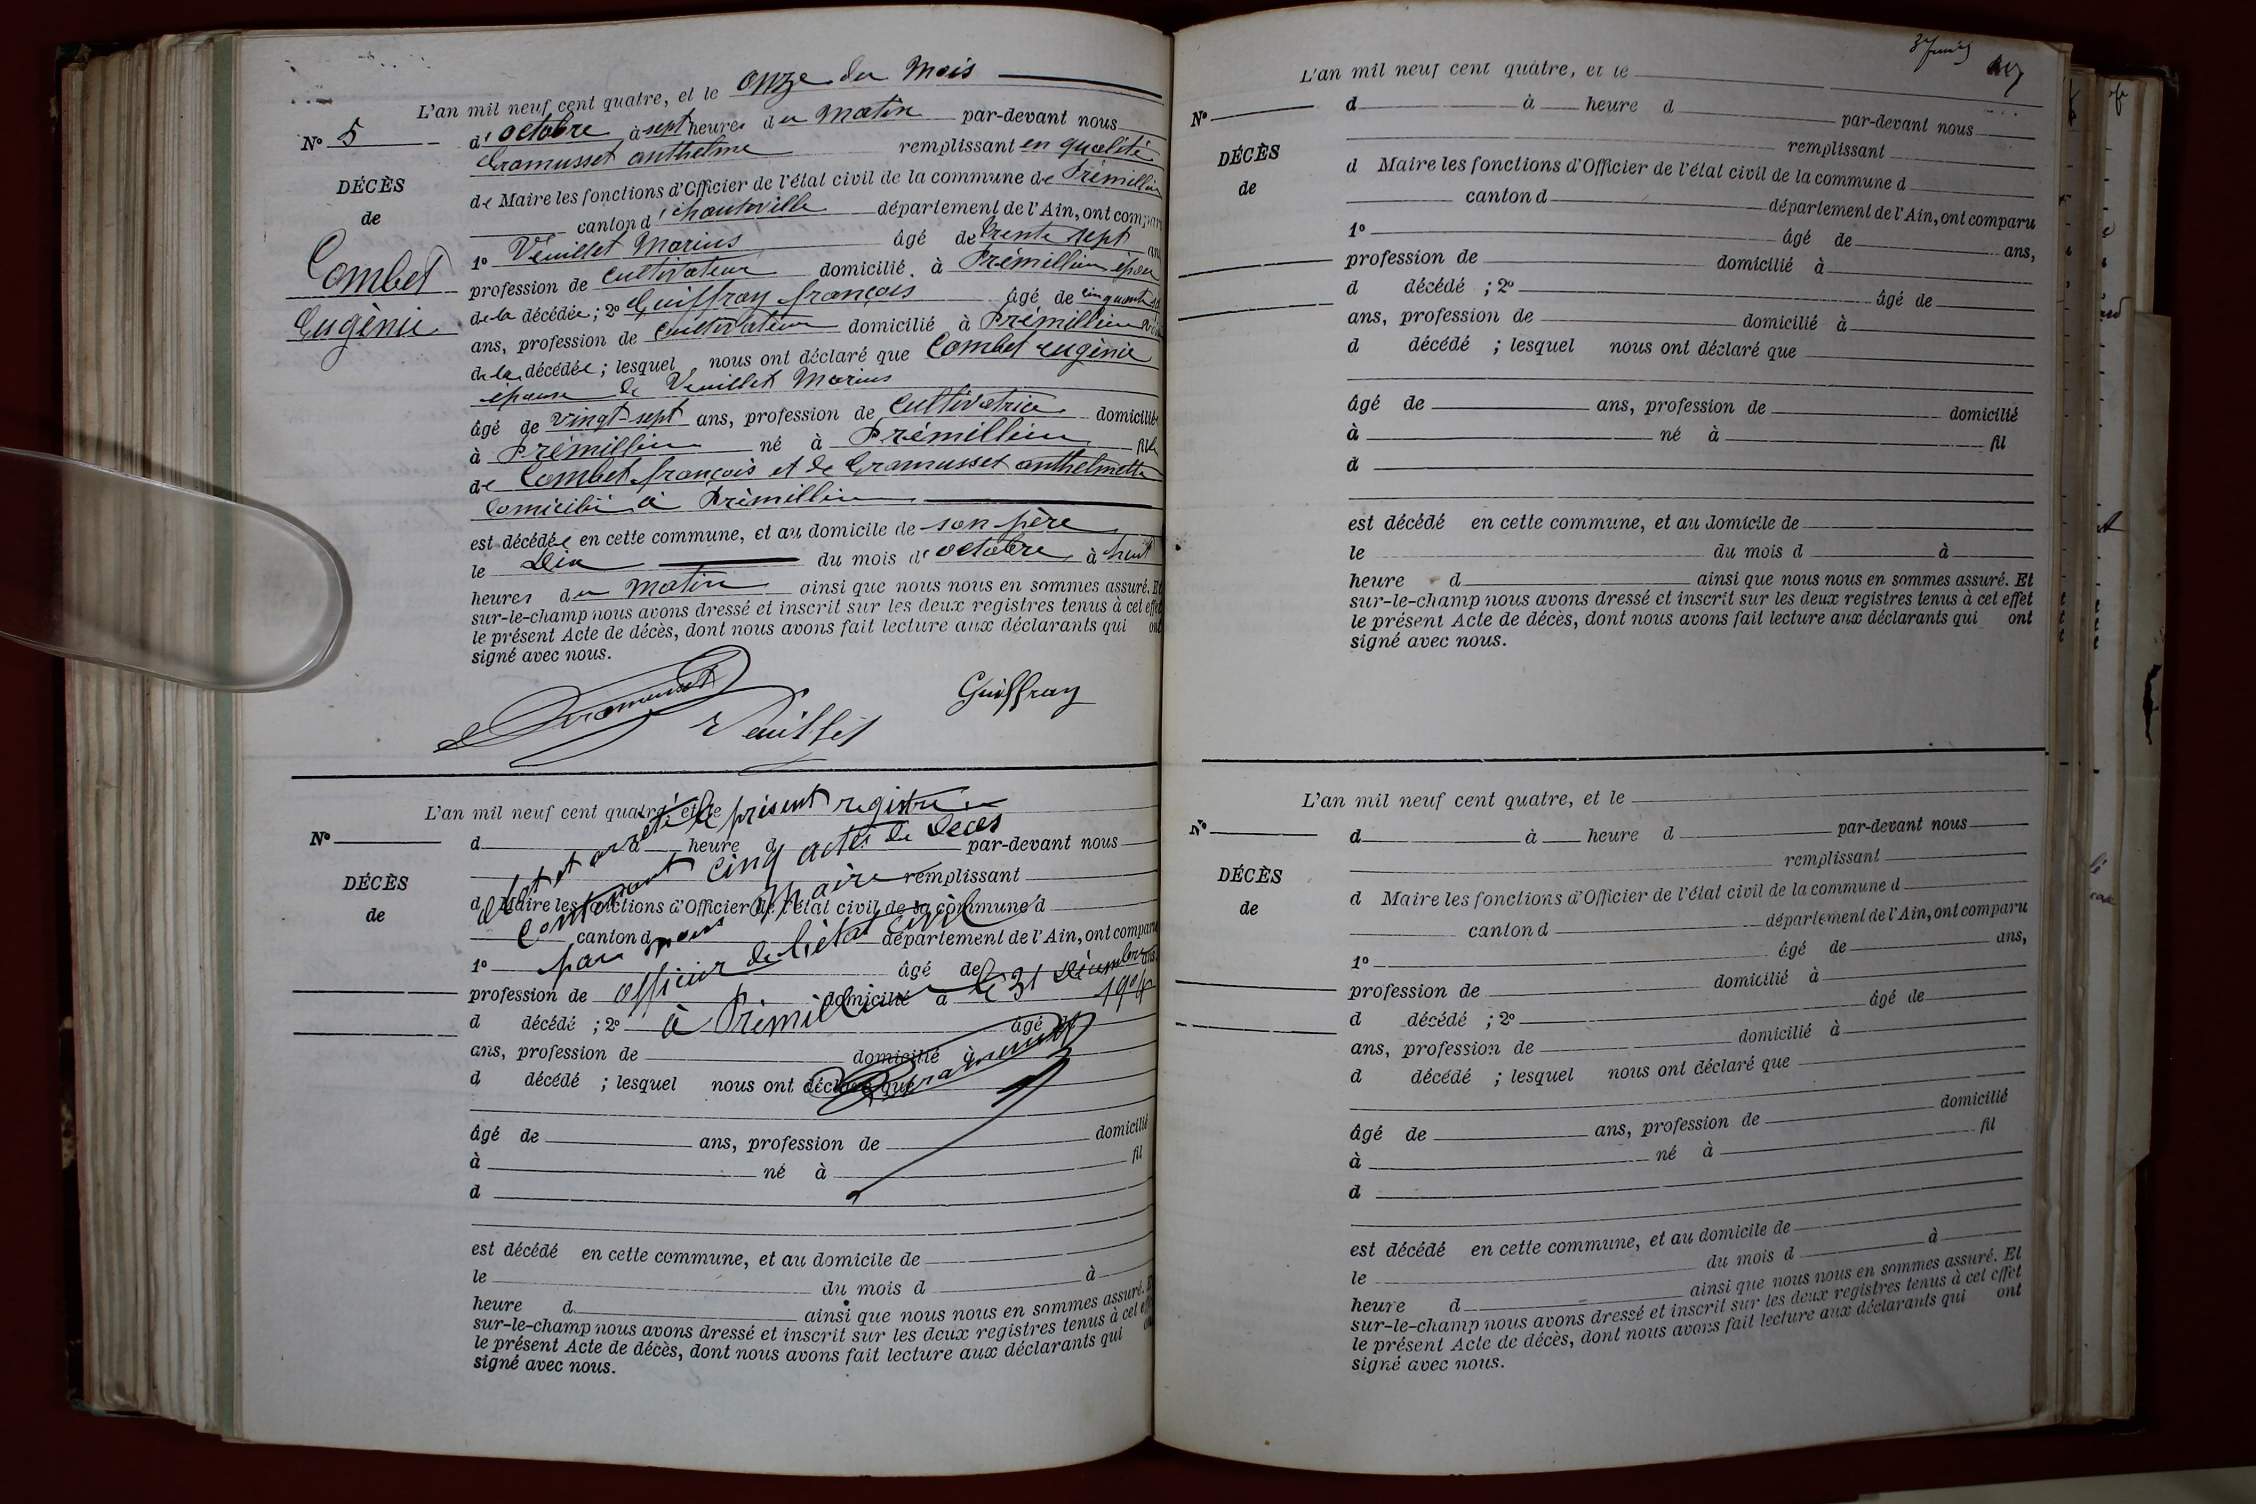 L'an mil neuf cent quatre, et le onze du Mois
N° 5
d'octobre à sept heures du Matin par-devant nous
Gramusset anthelme remplissant en qualité
DÉCÈS
de Maire les fonctions d'Officier de l'état civil de la commune de Prémillieu
de
canton d'hauteville département de l'Ain, ont comparu
Combet
Eugénie
1° Veuillet Marius âgé de trente sept ans
profession de cultivateur domicilié à Prémillieu époux
de la décédée ; 2° Guiffray françois âgé de cinquante
ans, profession de cultivateur domicilié à Prémillieu
de la décédée ; lesquel nous ont déclaré que Combet eugénie
épouse de Veuillet Marius
âgé de vingt-sept ans, profession de cultivatrice domiciliée
à Prémillieu né à Prémillieu fille
de Combet françois et de Gramusset anthelmette
domicilié à Prémillieu
est décédée en cette commune, et au domicile de son père
le Dix du mois d'octobre à huit
heures du matin ainsi que nous nous en sommes assuré. Et
sur-le-champ nous avons dressé et inscrit sur les deux registres tenus à cet effet
le présent Acte de décès, dont nous avons fait lecture aux déclarants qui ont
signé avec nous.
Gramusset
Veuillet
Guiffray
L'an mil neuf cent quatre, et le
N°
d à heure d par-devant nous
remplissant
DÉCÈS
d Maire les fonctions d'Officier de l'état civil de la commune d
de
canton d département de l'Ain, ont comparu
1° âgé de ans,
profession de domicilié à
d décédé ; 2° âgé de
ans, profession de domicilié à
d décédé ; lesquel nous ont déclaré que
âgé de ans, profession de domicilié
à né à fil
d
est décédé en cette commune, et au domicile de
le du mois d à
heure d ainsi que nous nous en sommes assuré. Et
sur-le-champ nous avons dressé et inscrit sur les deux registres tenus à cet effet
le présent Acte de décès, dont nous avons fait lecture aux déclarants qui ont
signé avec nous.
Clot et arrêté le présent registre
Contenant cinq actes de Décès
par nous Maire
officier de l'état civil
à Prémillieu le 31 Décembre
1904
Gramusset
L'an mil neuf cent quatre, et le
N°
d à heure d par-devant nous
remplissant
DÉCÈS
d Maire les fonctions d'Officier de l'état civil de la commune d
de
canton d département de l'Ain, ont comparu
1° âgé de ans,
profession de domicilié à
d décédé ; 2° âgé de
ans, profession de domicilié à
d décédé ; lesquel nous ont déclaré que
âgé de ans, profession de domicilié
à né à fil
d
est décédé en cette commune, et au domicile de
le du mois d à
heure d ainsi que nous nous en sommes assuré. Et
sur-le-champ nous avons dressé et inscrit sur les deux registres tenus à cet effet
le présent Acte de décès, dont nous avons fait lecture aux déclarants qui ont
signé avec nous.
L'an mil neuf cent quatre, et le
N°
d à heure d par-devant nous
remplissant
DÉCÈS
d Maire les fonctions d'Officier de l'état civil de la commune d
de
canton d département de l'Ain, ont comparu
1° âgé de ans,
profession de domicilié à
d décédé ; 2° âgé de
ans, profession de domicilié à
d décédé ; lesquel nous ont déclaré que
âgé de ans, profession de domicilié
à né à fil
d
est décédé en cette commune, et au domicile de
le du mois d à
heure d ainsi que nous nous en sommes assuré. Et
sur-le-champ nous avons dressé et inscrit sur les deux registres tenus à cet effet
le présent Acte de décès, dont nous avons fait lecture aux déclarants qui ont
signé avec nous.